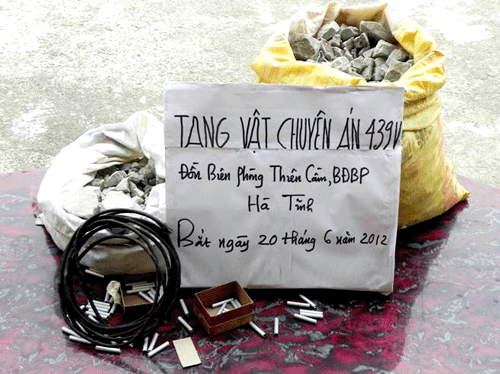 TANG VẬT CHUYÊN ÁN 439V
Đồn Biên phòng Thiên Cầm, BĐBP
Hà Tĩnh
Bắt ngày 20 tháng 6 năm 2012